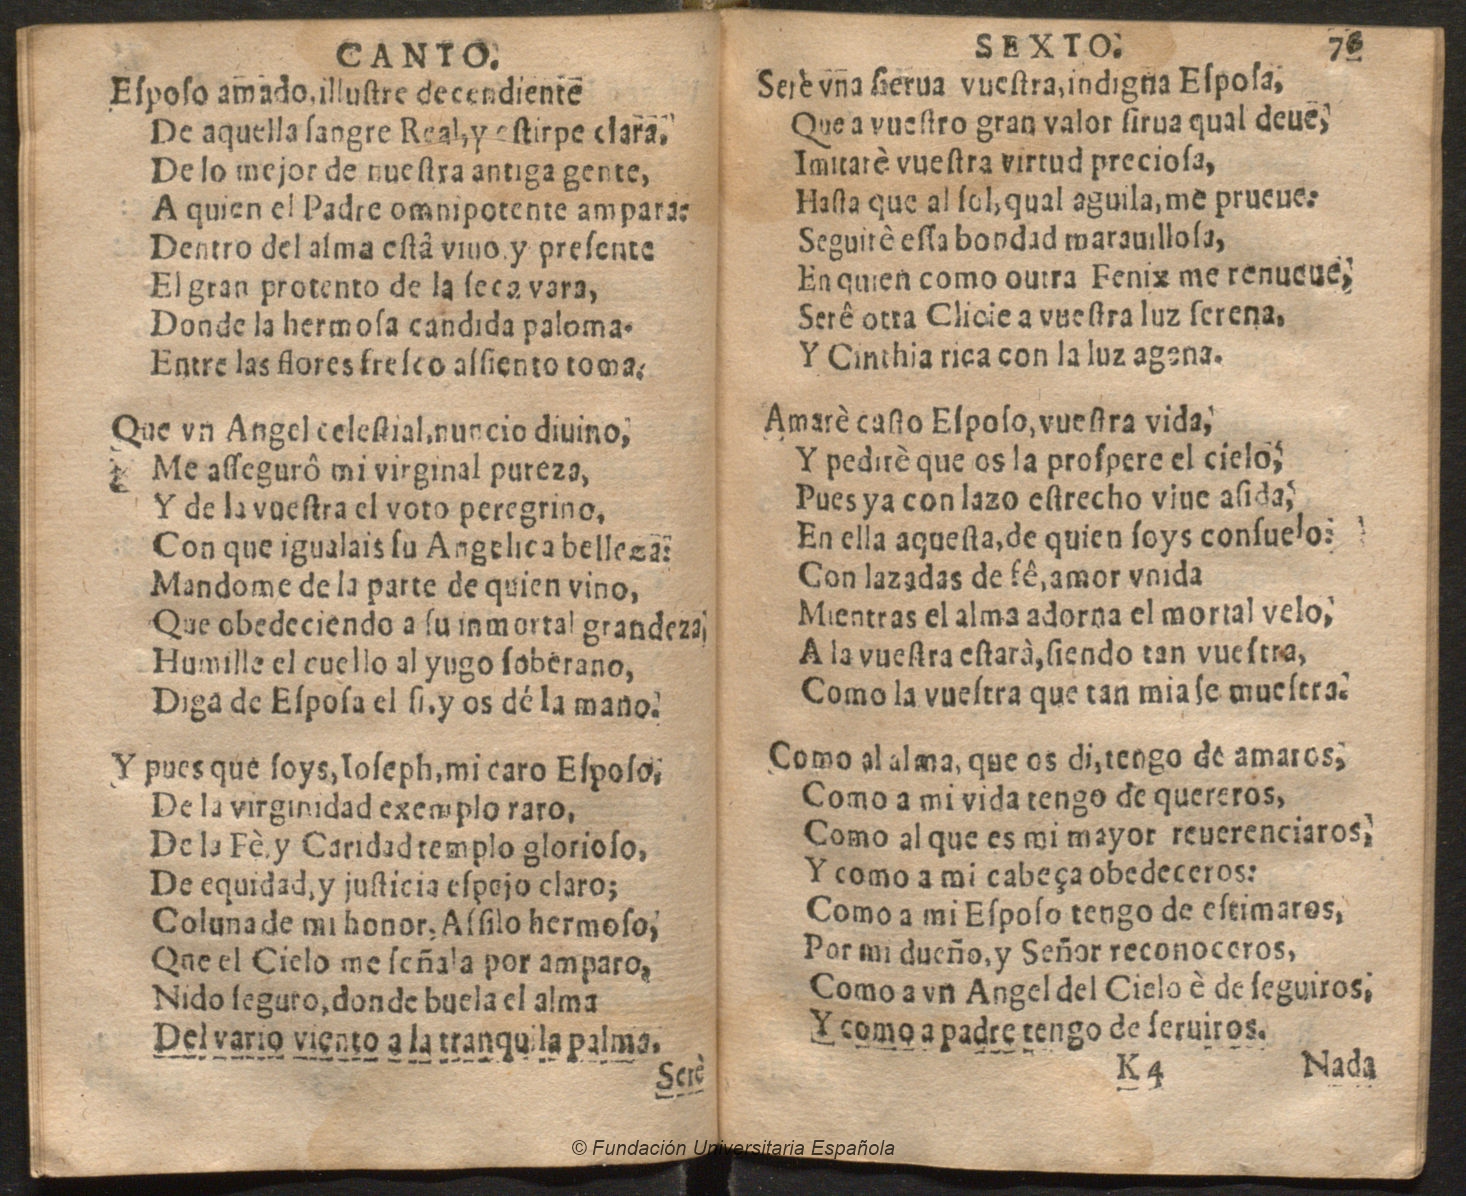 CANTO.
Eſpoſo amado, illuſtre decendiente
De aquella ſangre Real, y eſtirpe clara,
De lo mejor de nueſtra antiga gente,
A quien el Padre omnipotente ampara:
Dentro del alma eſtâ viuo, y preſente
El gran protento de la ſeca vara,
Donde la hermoſa candida paloma
Entre las flores freſco aſsiento toma.
Que vn Angel celeſtial, nuncio diuino,
Me aſſegurô mi virginal pureza,
Y de la vueſtra el voto peregrino,
Con que igualais ſu Angelica belleza:
Mandome de la parte de quien vino,
Que obedeciendo a ſu inmortal grandeza,
Humille el cuello al yugo ſoberano,
Diga de Eſpoſa el ſi, y os dé la mano.
Y pues que ſoys, Ioſeph, mi caro Eſpoſo,
De la virginidad exemplo raro,
De la Fè, y Caridad templo glorioſo,
De equidad, y juſticia eſpejo claro;
Coluna de mi honor, Aſsilo hermoſo,
Que el Cielo me ſeñala por amparo,
Nido ſeguro, donde buela el alma
Del vario viento a la tranquila palma.
Serè
SEXTO.
76
Serè vna ſierua vueſtra, indigna Eſpoſa,
Que a vueſtro gran valor ſirua qual deue,
Imitarè vueſtra virtud precioſa,
Haſta que al ſol, qual aguila, me prueue:
Seguirè eſſa bondad marauilloſa,
En quien como outra Fenix me renueue,
Serê otra Clicie a vueſtra luz ſerena,
Y Cinthia rica con la luz agena.
Amarè caſto Eſpoſo, vueſtra vida,
Y pedirè que os la proſpere el cielo,
Pues ya con lazo eſtrecho viue aſida,
En ella aqueſta, de quien ſoys conſuelo:
Con lazadas de fê, amor vnida
Mientras el alma adorna el mortal velo,
A la vueſtra eſtarà, ſiendo tan vueſtra,
Como la vueſtra que tan mia ſe mueſtra.
Como al alma, que os di, tengo de amaros,
Como a mi vida tengo de quereros,
Como al que es mi mayor reuerenciaros,
Y como a mi cabeça obedeceros:
Como a mi Eſpoſo tengo de eſtimaros,
Por mi dueño, y Señor reconoceros,
Como a vn Angel del Cielo è de ſeguiros,
Y como a padre tengo de ſeruiros.
K 4
Nada
© Fundación Universitaria Española